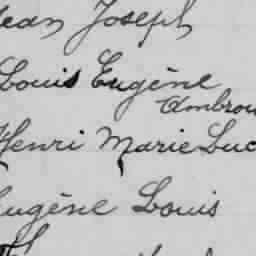 Jean Joseph
Louis Eugène
Ambroi
Henri Marie Luc
Eugène Louis